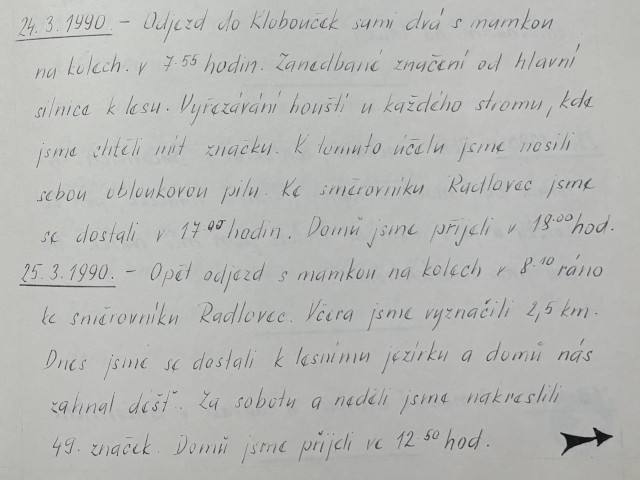 24.3.1990. - Odjezd do Klobouček sami dvá s mamkou
na kolech. v 7.55 hodin. Zanedbané značení od hlavní
silnice k lesu. Vyřezávání houští u každého stromu, kde
jsme chtěli mít značku. K tomuto účelu jsme nosili
sebou obloukovou pilu. Ke směrovníku Radlovec jsme
se dostali v 17.00 hodin. Domů jsme přijeli v 19.00 hod.
25.3.1990. - Opět odjezd s mamkou na kolech v 8.10 ráno
ke směrovníku Radlovec. Včera jsme vyznačili 2,5 km.
Dnes jsme se dostali k lesnímu jezírku a domů nás
zahnal déšť. Za sobotu a neděli jsme nakreslili
49. značek. Domů jsme přijeli ve 12 50 hod.